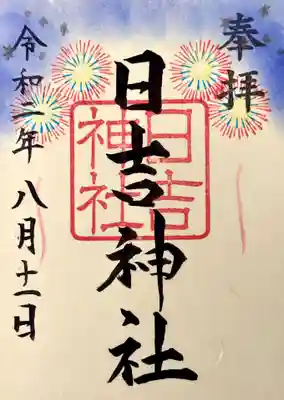 奉拝
日吉神社
日吉
神社
令和二年 八月十一日